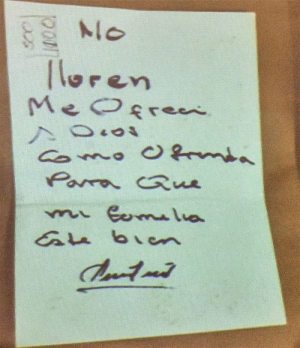 No
lloren
Me Ofreci
A Dios
Como Ofrenda
Para Que
mi Familia
Este bien